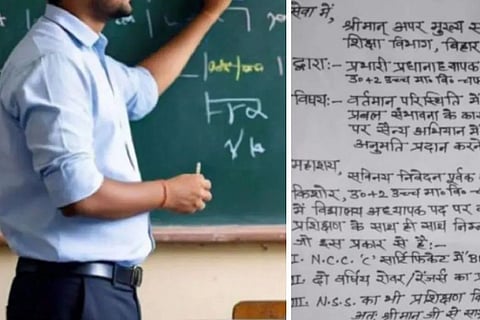 सेवा में,
श्रीमान् अपर मुख्य स
शिक्षा विभाग, बिहार
द्वारा:- प्रभारी प्रधानाध्यापक
उ०+2 उच्च मा० वि०
विषय:- वर्तमान परिस्थिति में
प्रबल संभावना के का
पर सैन्य अभियान में
अनुमति प्रदान करने
महाशय,
सविनय निवेदन पूर्वक
किशोर, उ०+2 उच्च मा० वि०
में विद्यालय अध्यापक पद पर
प्रशिक्षण के साथ ही साथ निम्न
जो इस प्रकार से है:-
I. N.C.C. 'C' सर्टिफिकेट में 'B
II. दो वर्षीय रोवर/रेंजर्स का प्र
III. N.S.S. का भी प्रशिक्षण
अतः श्रीमान् जी से सा